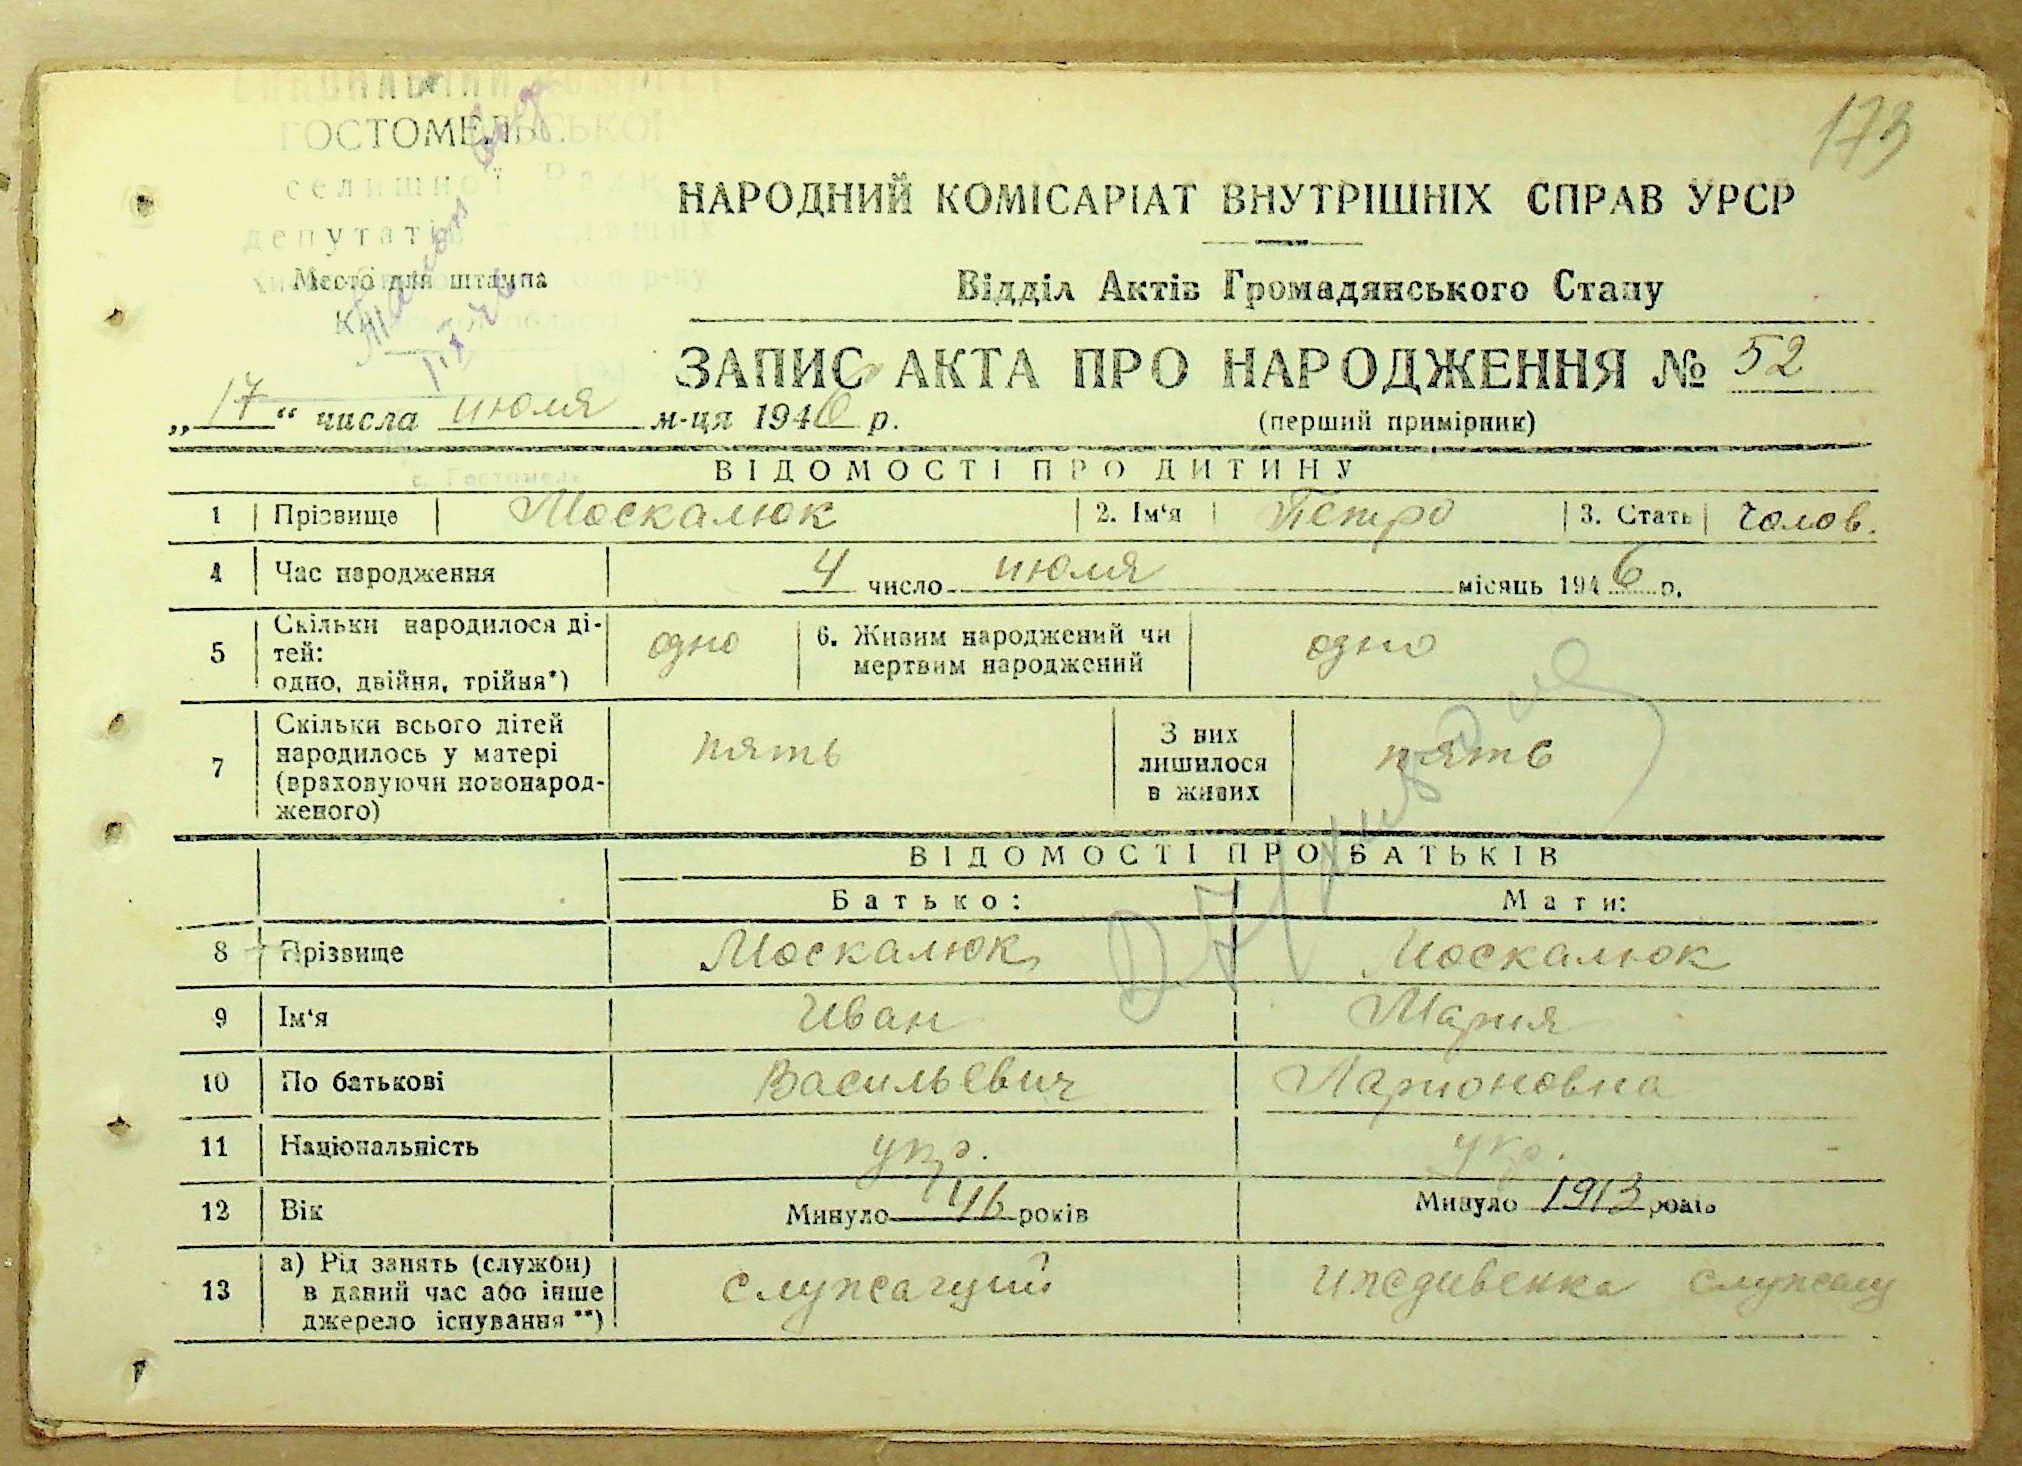 173
ГОСТОМЕЛЬСЬКОЇ
селишної Ради
депутатів
Место для штампа
НАРОДНИЙ КОМІСАРІАТ ВНУТРІШНІХ СПРАВ УРСР
Відділ Актів Громадянського Стану
ЗАПИС АКТА ПРО НАРОДЖЕННЯ № 52
„17“ числа июля м-ця 1946 р.
(перший примірник)
ВІДОМОСТІ ПРО ДИТИНУ
1 Прізвище Москалюк 2. Ім‘я Петро 3. Стать Чолов.
4 Час народження 4 число июля місяць 1946 р.
5 Скільки народилося ді-
тей:
одно, двійня, трійня*) одно
6. Живим народжений чи
мертвим народжений одно
7 Скільки всього дітей
народилось у матері
(враховуючи новонарод-
женого) пять
З них
лишилося
в живих пять
ВІДОМОСТІ ПРО БАТЬКІВ
Батько: Мати:
8 Прізвище Москалюк Москалюк
9 Ім‘я Иван Мария
10 По батькові Васильевич Ларионовна
11 Національність укр. укр.
12 Вік Минуло 46 років Минуло 1913 років
13 а) Рід занять (служби)
в даний час або інше
джерело існування **) служащий иждивенка служащ